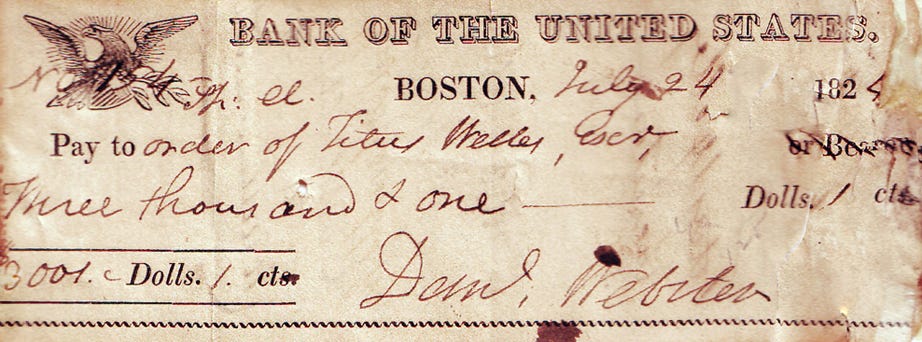 BANK OF THE UNITED STATES.
BOSTON, July 24 1824
Pay to order of Titus Welles, Esqr, or Bearer
Three thousand & one — Dolls. 1 cts
3001. Dolls. 1. cts.
Danl. Webster